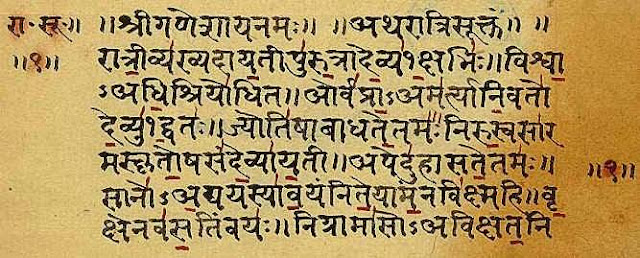 रा॰सू॰॥ ॥श्रीगणेशायनमः॥ ॥अथरात्रिसूक्तं॥
॥१॥ रात्रीव्यख्यदायतीपुरुत्रादेव्य१क्षभिः॥विश्वा
ऽअधिश्रियोधित॥ओर्वप्राऽअमर्त्यानिवतो
देव्यु१द्वतः॥ज्योतिषाबाधतेतमः॑निरुस्वसार
मस्कृतोषसंदेव्यायती॥अपेदुहासतेतमः॥ ॥१॥
सानोऽअद्ययस्यावयंनितेयामनविक्ष्महि॥वृ
क्षेनवसतिंवयः॥निग्रामासोऽअविक्षतनि